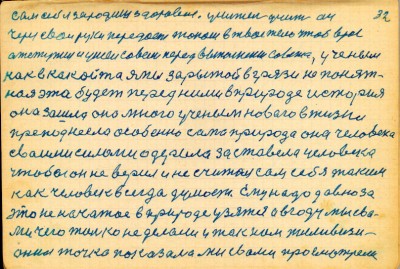 сам себя зародиш здоровем. учител учит он 32
через свои руки передает током в твое тело чтоб враг
отступил и ушел совсем перед выполнением совета, ученым
как в какой та ямы зарытой в грязи не понят-
ная эта будет перед ними в природе история
она зашла она много ученым новаго в жизни
преподнесла особенно само природа она человека
своими силами одурила заставела человека
чтобы он не верил и не считал сам себя таким
как человек всегда думости. Ему надо давно за
это не начатое в природе узятся а вгоду мы сва-
ми чего только не делали и так ним теливизи-
онна точка показала ми свами просмотрели